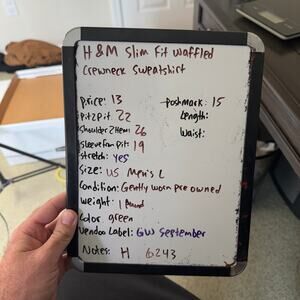 H&M Slim Fit Waffled
Crewneck Sweatshirt
Price: 13
Poshmark: 15
Pit2Pit 22
Length:
Shoulder2Hem: 26
Waist:
Sleeve from Pit: 19
Stretch: Yes
Size: US Men's L
Condition: Gently worn pre owned
Weight: 1 Pound
Color green
Vendoo Label: GW September
Notes: H 6243